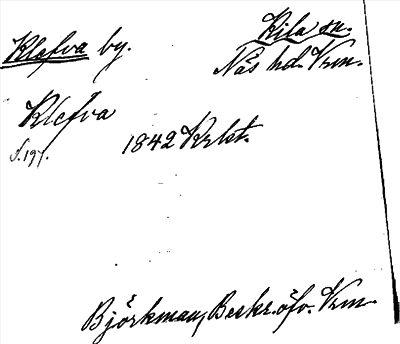 Klefva by.
Kila sn.
Näs hd. Vrm.
Klefva
s. 197.
1842 Krlst.
Björkman, Beskr. öfv. Vrm.